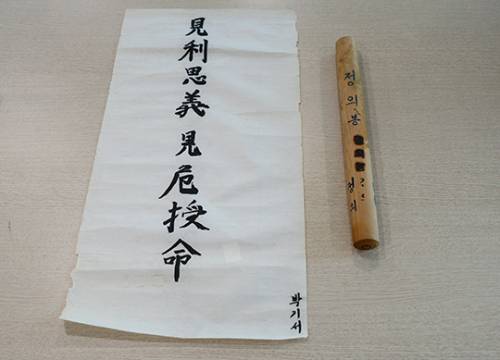 見利思義見危授命
박기서
정의봉